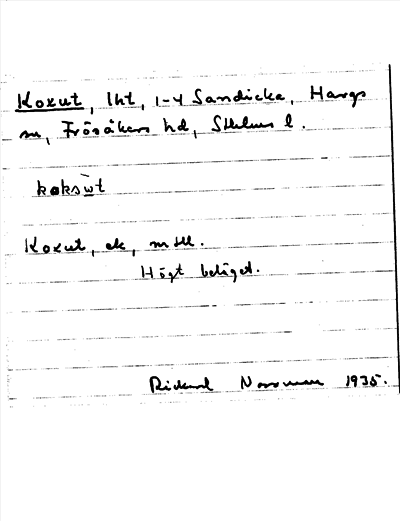 Koxut, lht, 1-4 Sandicka, Hargs
sn, Frösåkers hd, Sthlms l.
koksẁt
Koxut, ek, mtll.
Högt beläget.
Rickard Norrman 1935.